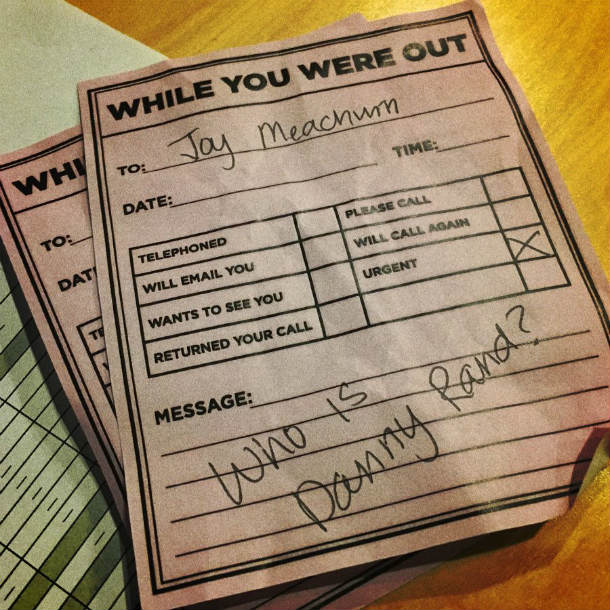 WHILE YOU WERE OUT
TO: Joy Meachum
DATE: TIME:
TELEPHONED PLEASE CALL
WILL EMAIL YOU WILL CALL AGAIN
WANTS TO SEE YOU URGENT X
RETURNED YOUR CALL
MESSAGE:
Who is
Danny Rand?
WHI
TO:
DAT
TE